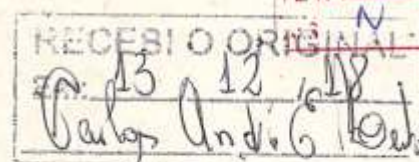 N
RECEBI O ORIGINAL
Em: 13 12 18
Carlos André